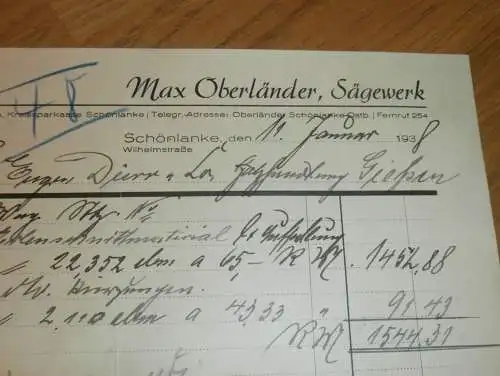 48
Max Oberländer, Sägewerk
Kreissparkasse Schönlanke / Telegr.-Adresse: Oberländer Schönlanke Ostb. / Fernruf 254
Schönlanke, den 11. Januar 1938
Wilhelmstraße
Eugen Dürr & Co, Holzhandlung Gießen
1452,88
22,352 cbm a 65,- RM
91 43
2,110 cbm a 43,33 "
RM 1544,31